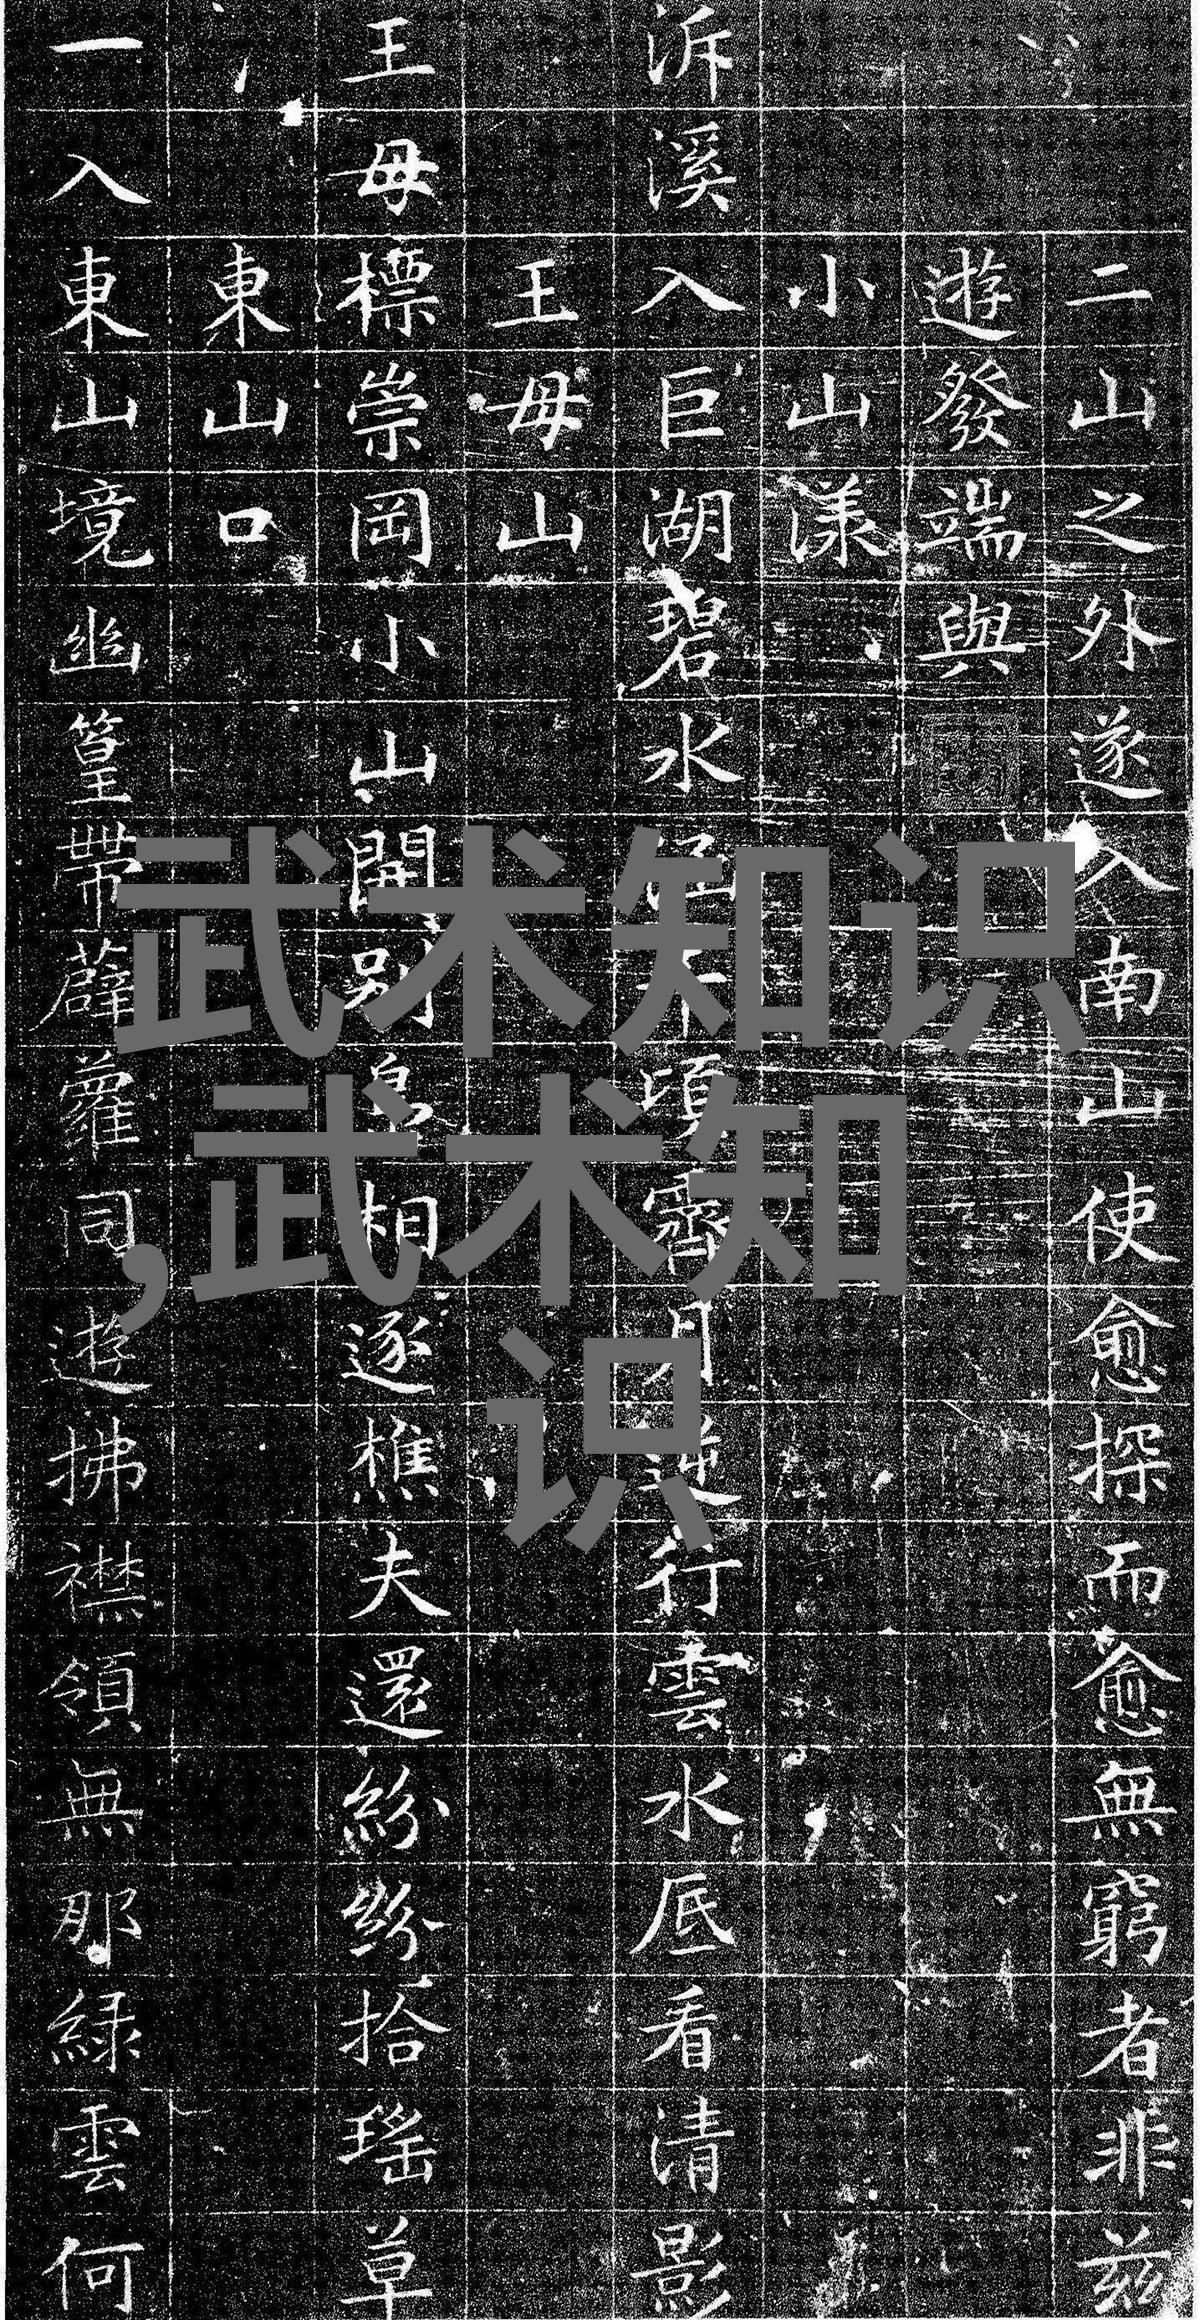 二山之外遂入南山使愈探而愈無窮者非茲
遊發端與
小山漾
泝溪入巨湖碧水頃齊月逆行雲水底看清影
王毋山
王毋標崇岡小山開別相逐樵夫還紛紛拾瑤草
東山口
一入東山境幽篁帶薜蘿同遊拂襟領無那綠雲何
武术知识
,武术知
识